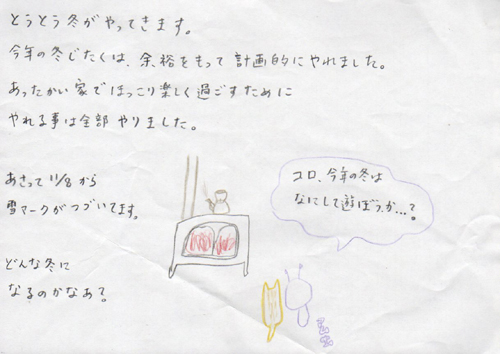 とうとう冬がやってきます。
今年の冬じたくは、余裕をもって計画的にやれました。
あったかい家でほっこり楽しく過ごすために
やれる事は全部やりました。
あさって11/8から
雪マークがつづいてます。
どんな冬に
なるのかなあ?
コロ、今年の冬は
なにして遊ぼうか…?